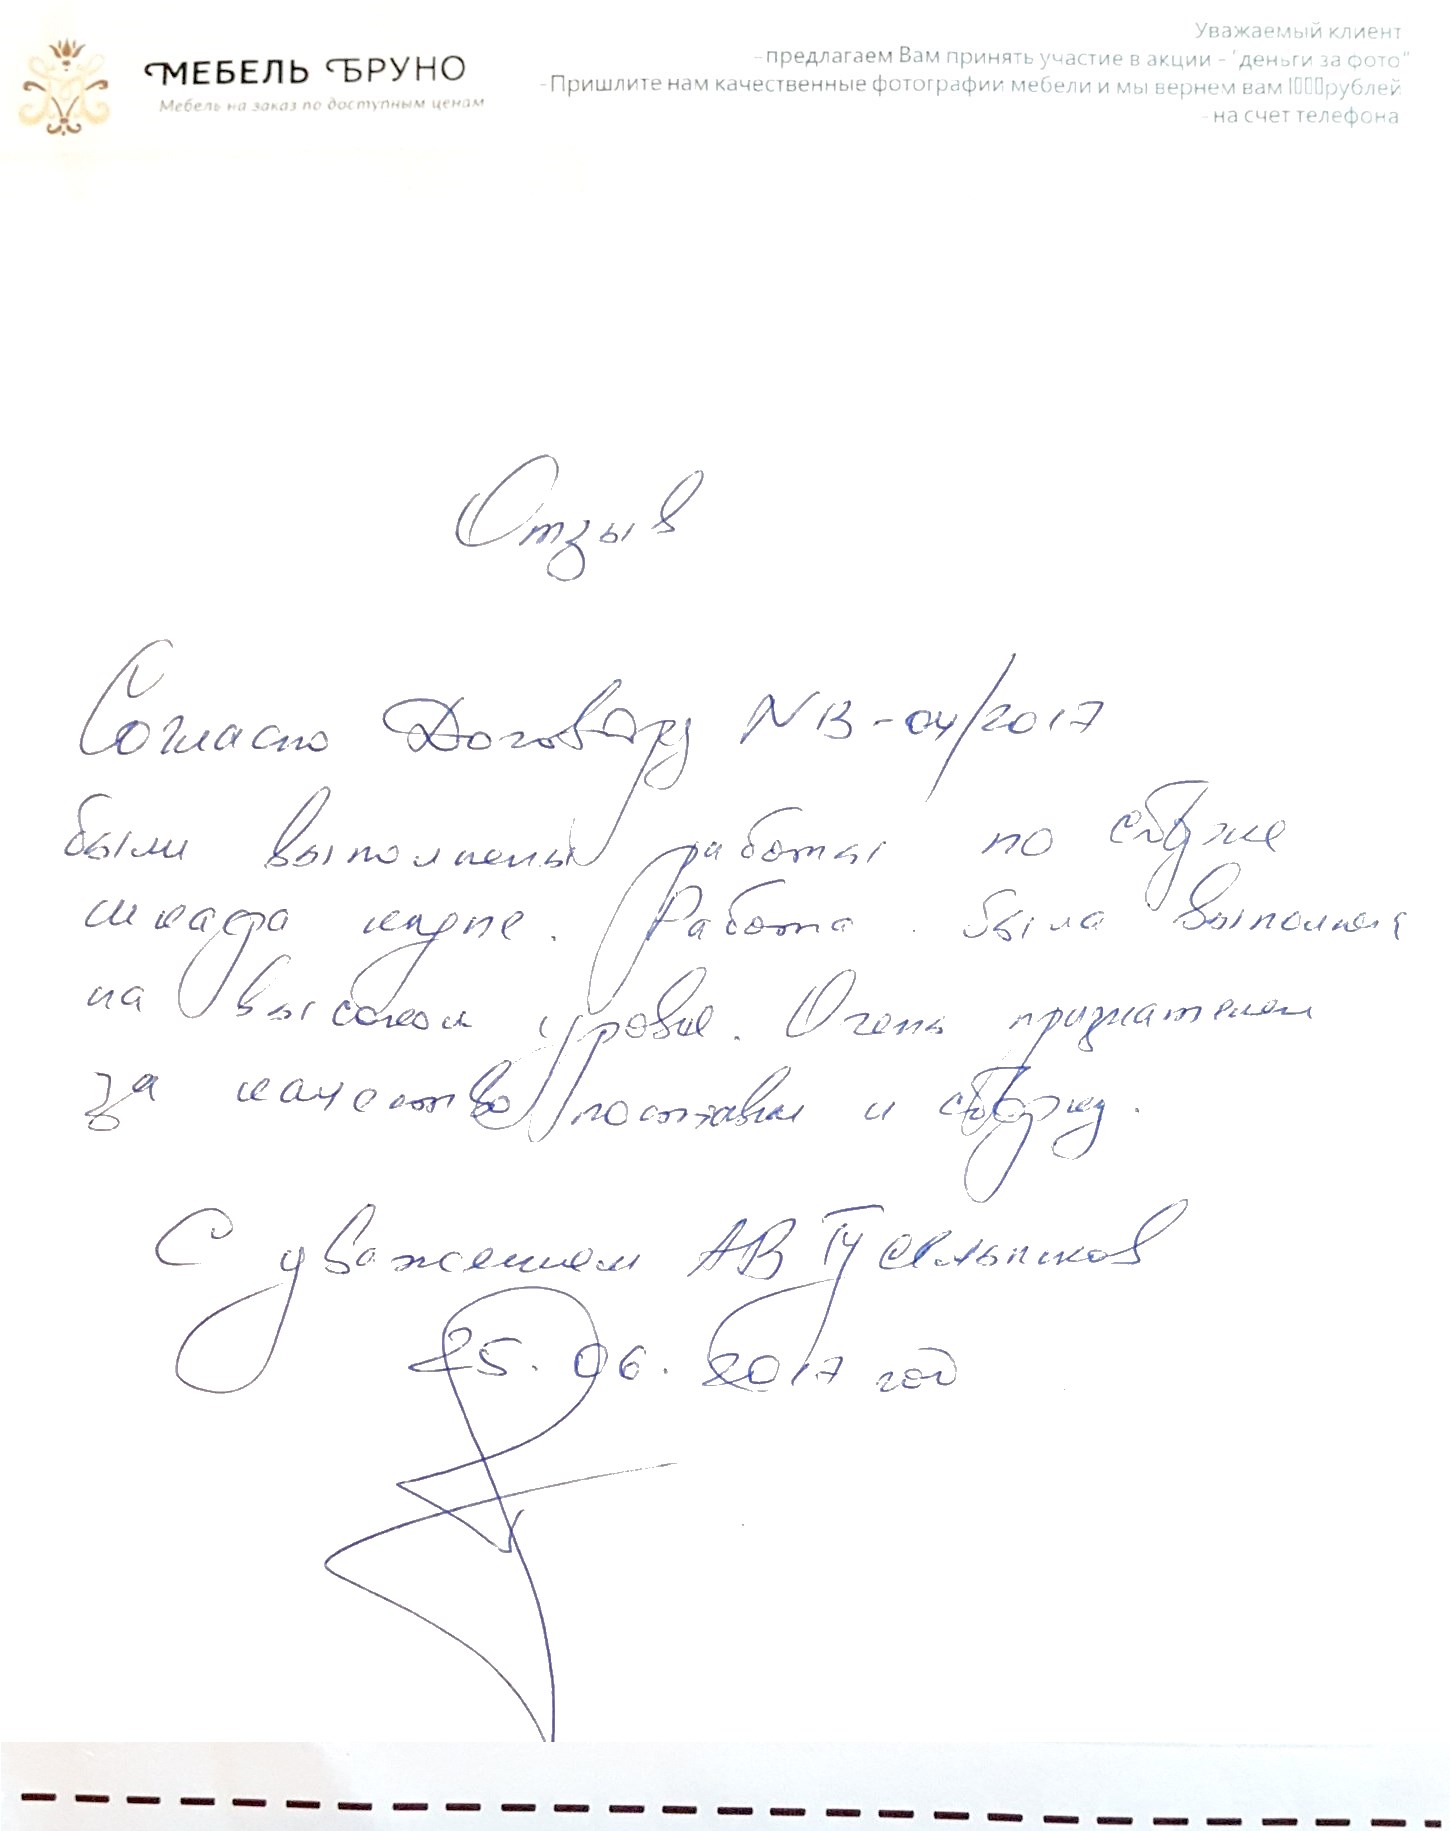 МЕБЕЛЬ БРУНО
Мебель на заказ по доступным ценам
Уважаемый клиент
-предлагаем Вам принять участие в акции - "деньги за фото"
-Пришлите нам качественные фотографии мебели и мы вернем вам 1000рублей
- на счет телефона
Отзыв
Согласно Договору N В-04/2017
были выполнены работы по сборке
шкафа купе. Работа была выполнена
на высоком уровне. Очень признателен
за качество поставки и сборку.
С уважением АВ Гусельников
25.06.2017 год